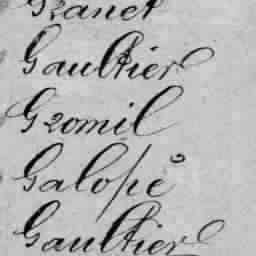 Granet
Gaultier
Gromil
Galopé
Gaultier